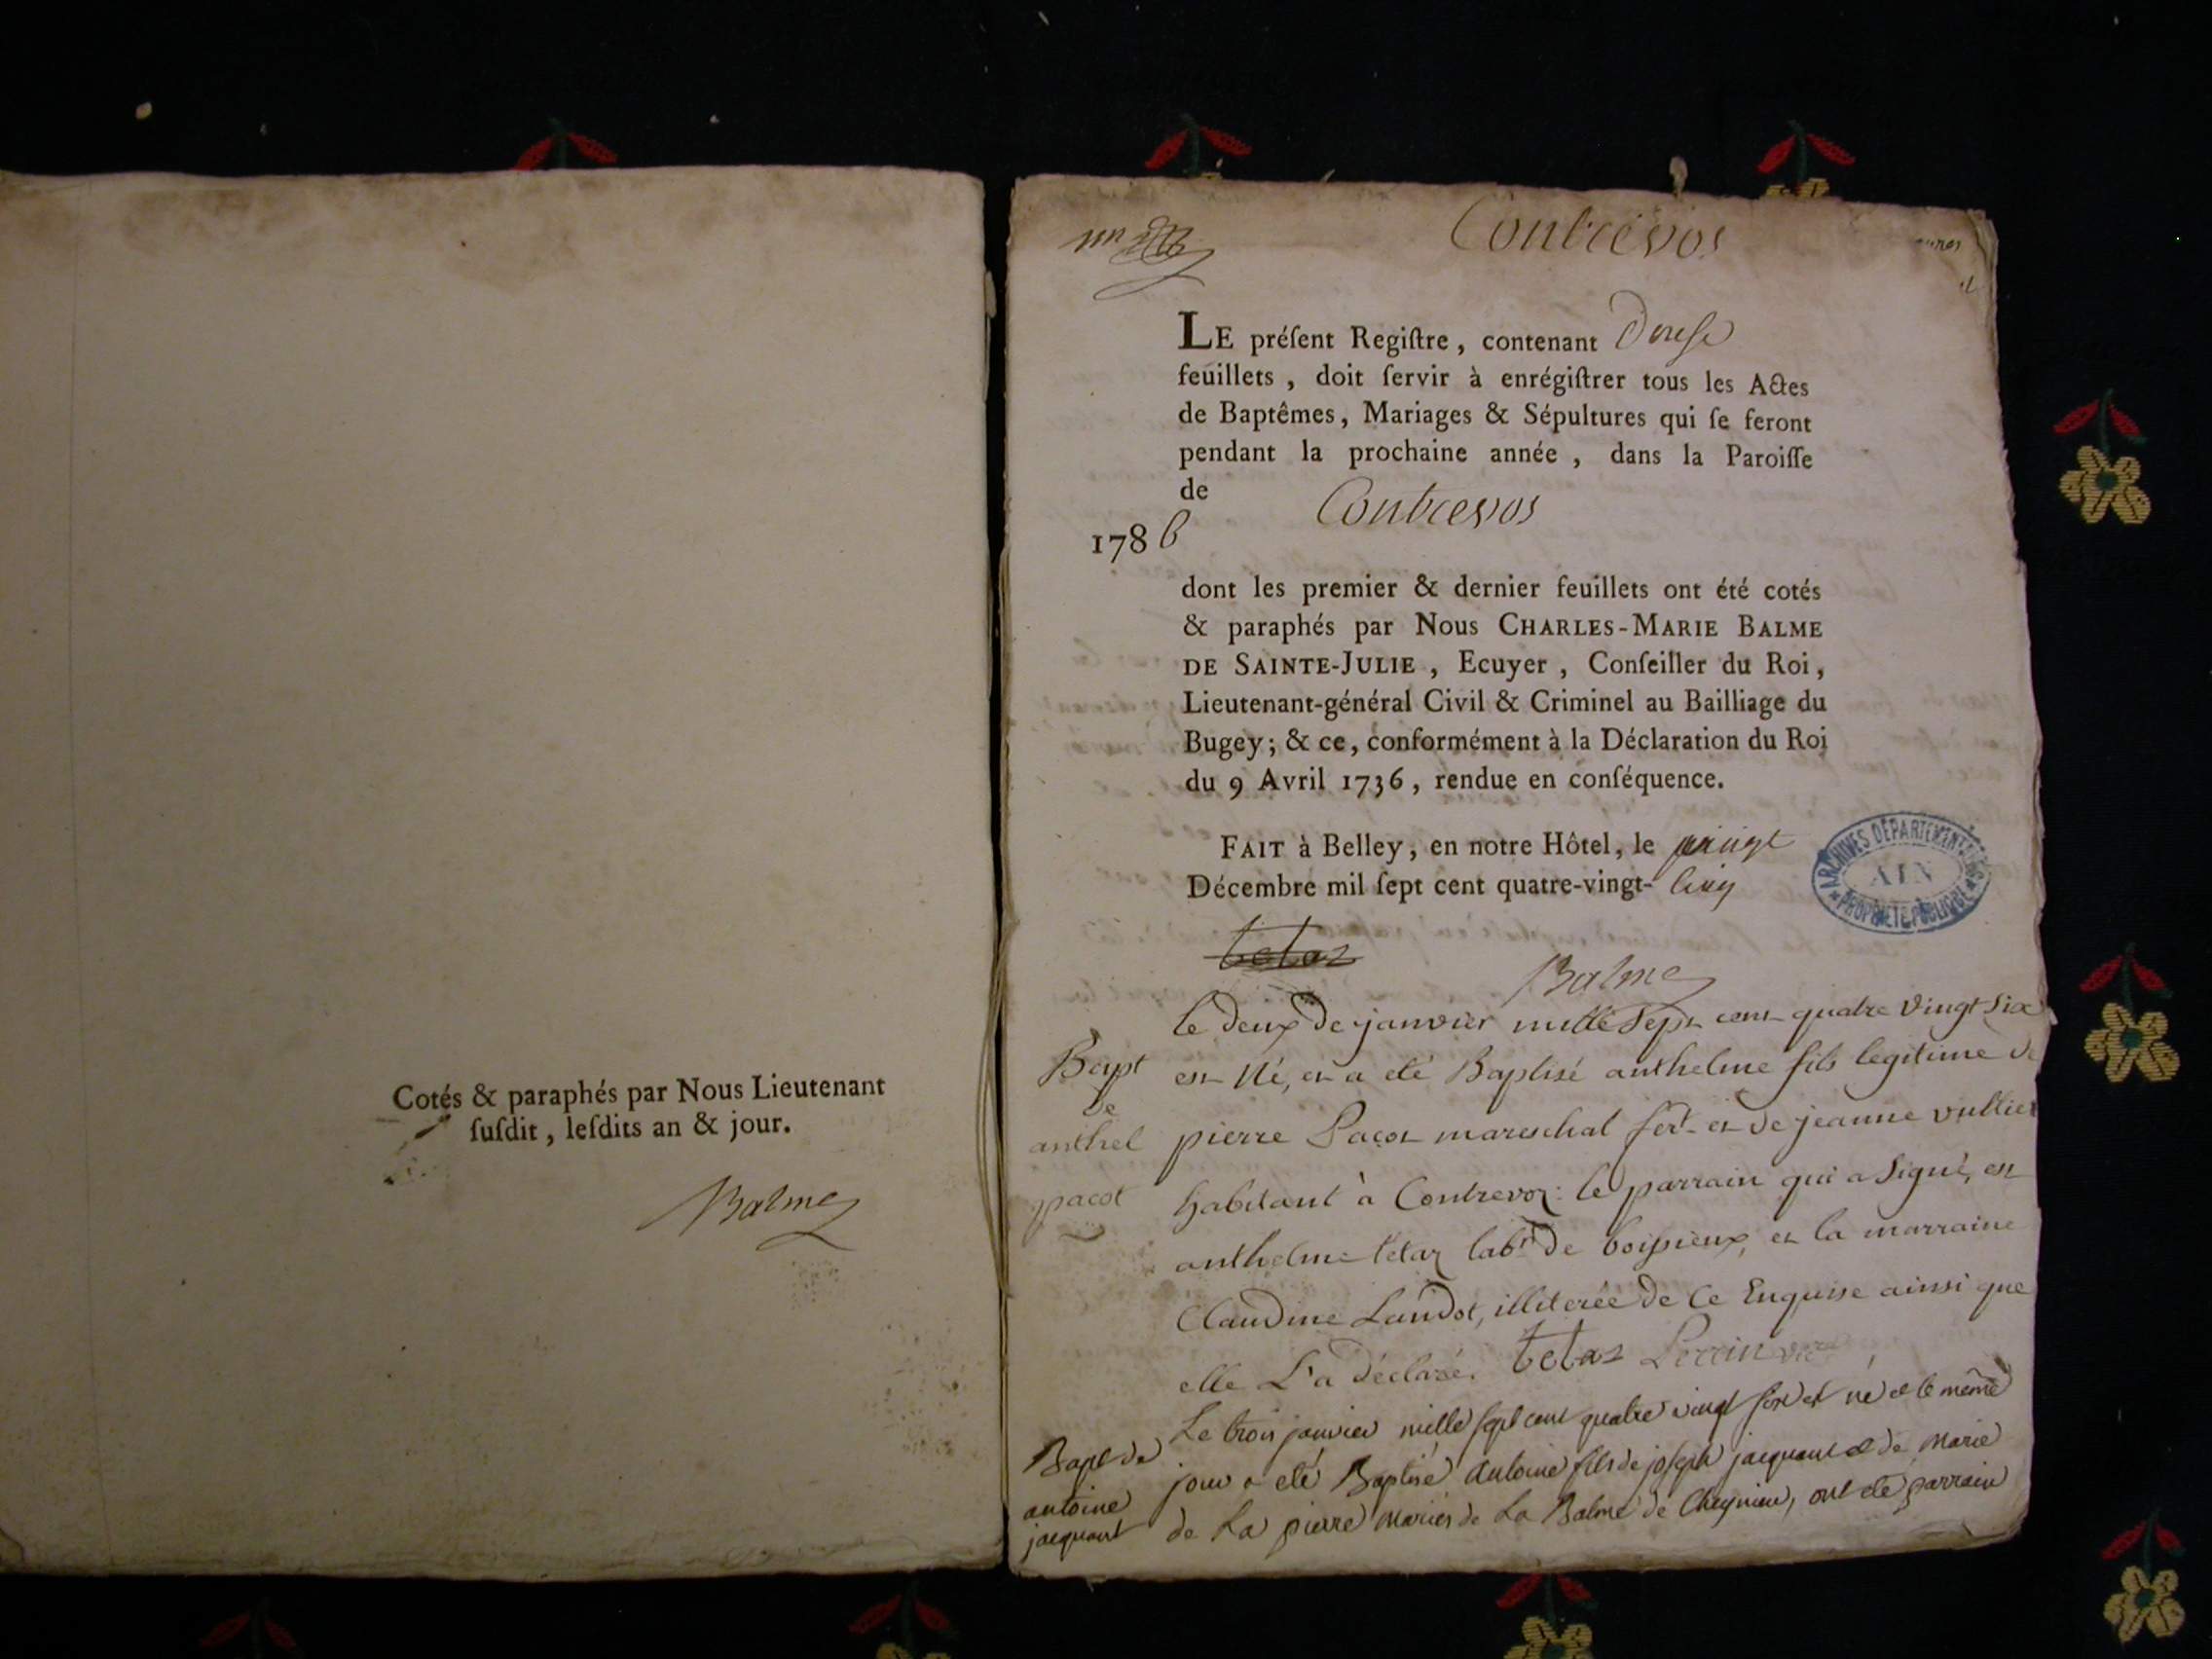 Cotés & paraphés par Nous Lieutenant
ſuſdit , leſdits an & jour.
Balme
Contrevos
LE préſent Regiſtre , contenant Douse
feuillets , doit ſervir à enrégiſtrer tous les Actes
de Baptêmes, Mariages & Sépultures qui ſe feront
pendant la prochaine année , dans la Paroiſſe
de Contrevos
1786
dont les premier & dernier feuillets ont été cotés
& paraphés par Nous CHARLES-MARIE BALME
DE SAINTE-JULIE , Ecuyer , Conſeiller du Roi ,
Lieutenant-général Civil & Criminel au Bailliage du
Bugey ; & ce, conformément à la Déclaration du Roi
du 9 Avril 1736 , rendue en conſéquence.
FAIT à Belley , en notre Hôtel , le vingt
Décembre mil ſept cent quatre-vingt- cinq
ARCHIVES DÉPARTEMENTALES
AIN
PROPRIÉTÉ PUBLIQUE
tetaz
Balme
Bapt
de
anthel
pacot
le deux de janvier mille Sept cent quatre vingt Six
est Né, et a eté Baptisé anthelme fils legitime de
pierre Pacot mareschal et de jeanne vullier
habitant à Contrevoz: le parrain qui a Signé, est
anthelme tetaz labr de boissieux, et la marraine
Claudine Landot, illiterée de ce Enquise ainsi que
elle L'a déclaré. tetaz Perrin
Bapt de
antoine
jacquant
Le trois janvier mille sept cent quatre vingt six est né et le même
jour a eté Baptisé Antoine fils de joseph jacquant et de Marie
de La pierre mariés de La Balme de Cheynieu, ont eté parrain